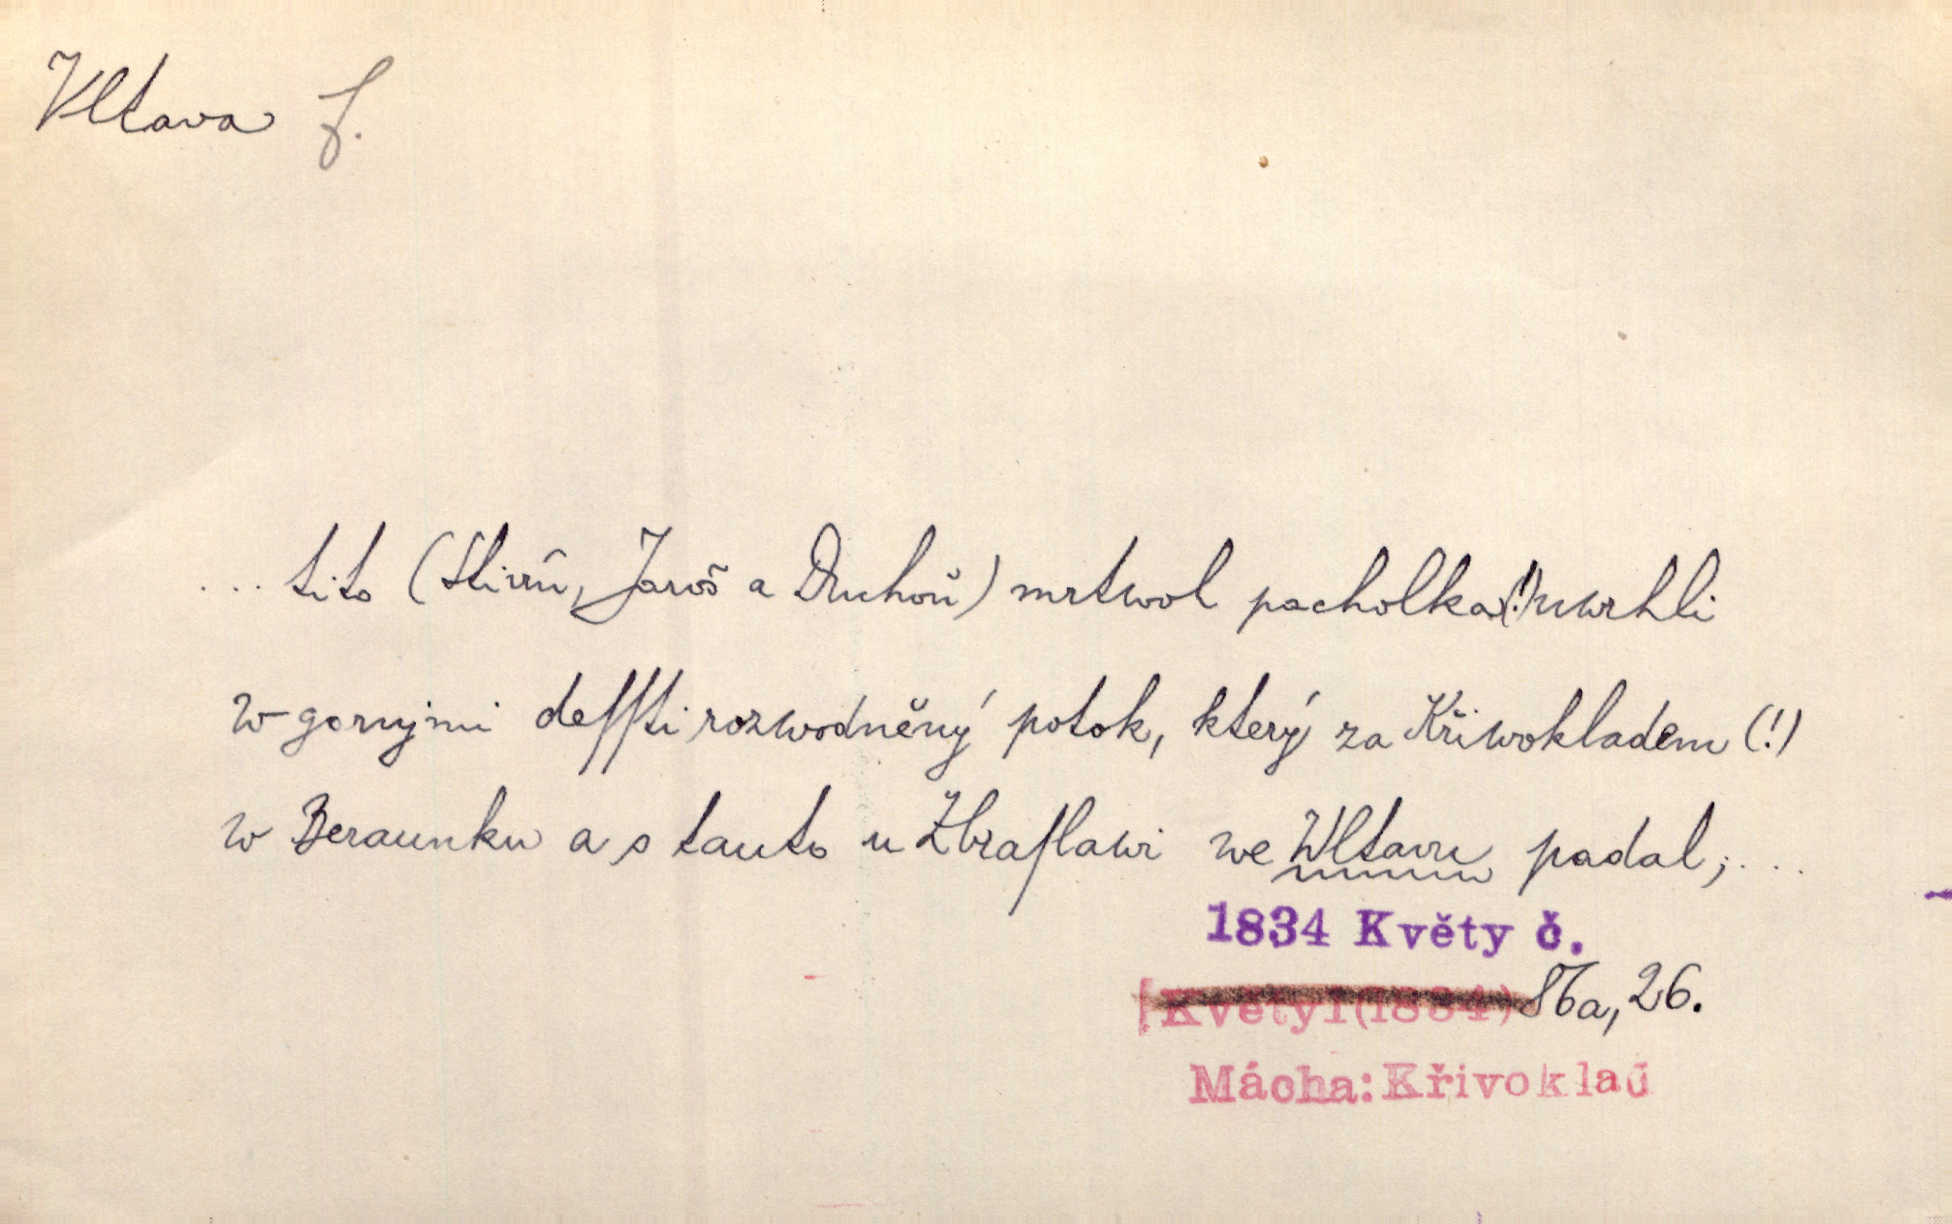 Vltava f.
... tito (Stivín, Jaroš a Duchoň) mrtwol pacholka(!) uwrhli
w garnjmi dessti rozwodněný potok, který za Křiwokladem (!)
w Beraunku a s tauto u Zbraslawi we Wltawu padal; ...
1834 Květy č.
Květy I (1834) 86a, 26.
Mácha: Křivoklad